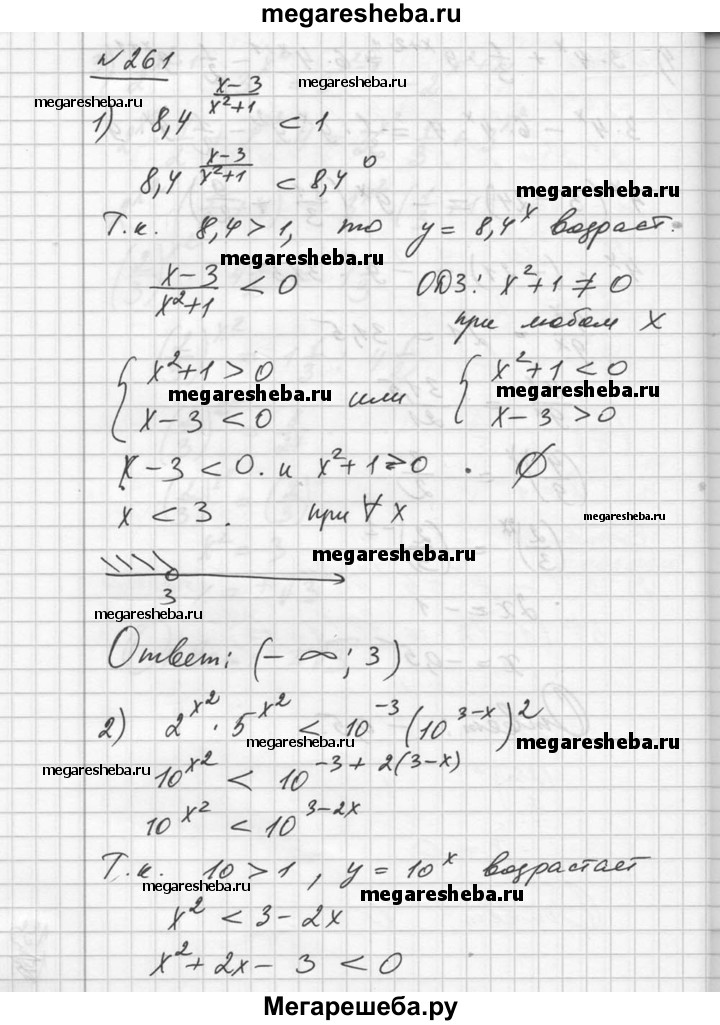 megaresheba.ru
№ 261
megaresheba.ru
megaresheba.ru
1) 8,4^((x-3)/(x²+1)) < 1
8,4^((x-3)/(x²+1)) < 8,4^0
megaresheba.ru
Т.к. 8,4 > 1, то y = 8,4^x возраст.
megaresheba.ru
(x-3)/(x²+1) < 0 ОДЗ: x²+1 ≠ 0
при любом x
{ x²+1 > 0 или { x²+1 < 0
megaresheba.ru megaresheba.ru
x-3 < 0 x-3 > 0
x-3 < 0. и x²+1 > 0 . ∅
x < 3. при ∀ x
megaresheba.ru
megaresheba.ru
3
megaresheba.ru
Ответ: (-∞; 3)
2) 2^(x²) · 5^(x²) < 10^(-3) (10^(3-x))²
megaresheba.ru megaresheba.ru
megaresheba.ru
10^(x²) < 10^(-3+2(3-x))
10^(x²) < 10^(3-2x)
Т.к. 10 > 1, y = 10^x возрастает
megaresheba.ru megaresheba.ru
x² < 3-2x
x²+2x-3 < 0
Мегарешеба.ру